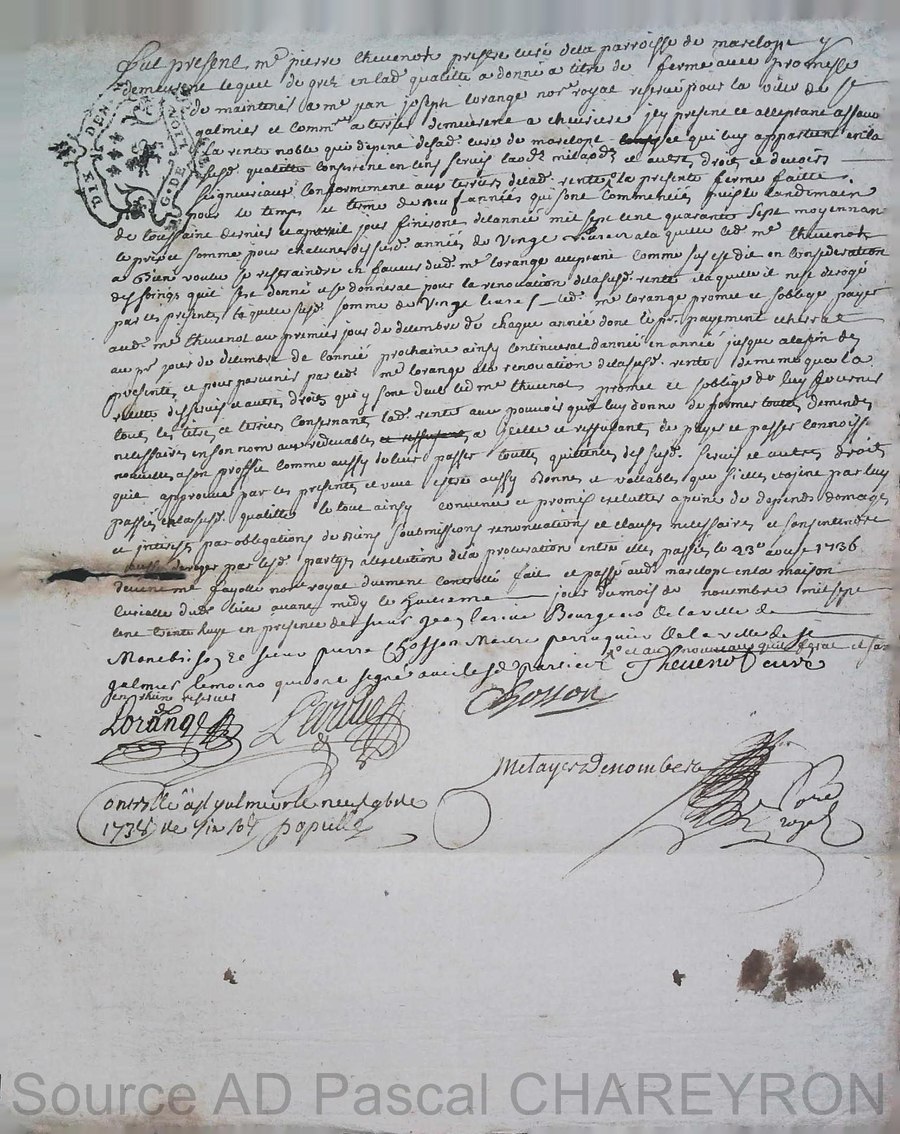 Fut present m.e pierre thevenot prestre curé de la parroisse de marclopt y
demeurant lequel de gré en lad. qualitté a donné a titre de ferme avec promesse
de maintenir a m.e jean joseph lorange no.re royal reservé pour la ville de S.t
galmier et comm.re a terrier demeurant a chevriere jcy present et acceptant assavoir
la rente noble qui depend de sad. cure de marclopt et qui luy appartient en la
susd. qualitté consistant en cens servis laods milaods et autres droits et devoirs
seigneuriaux conformement aux terriers de lad. rente la presente ferme faitte
pour le temps et terme de neuf années qui sont commencées puis le landemain
de toussaint dernier et a pareil jour finiront de lannée mil sept cent quarante sept moyennant
le prix et somme pour chacune desd. années de vingt livres a la quelle led. m.e thevenot
a bien voulu se restraindre en faveur dud. m.e lorange acceptant comme sus est dit en consideration
des soings quil sest donné et se donnerat pour la renovation de lasusd. rente et a quelle il nest derogé
par ces presentes la quelle susd. somme de vingt livres led. m.e lorange promet et soblige payer
aud. m.e thevenot au premier jour de decembre de chaque année dont le pr. payement echerrat
au pr. jour de decembre de lannée prochaine ainsy continuerat dannée en année jusque a la fin des
presentes, et pour parvenir par led. m.e lorange a la renovation de lasusd. rente de meme que la
recette des servis et autres droits qui y sont deub led. m.e thevenot promet et soblige de luy fournir
tous les titres et terriers concernant lad. rente aux pouvoir quil luy donne de former touttes demandes
necessaires en son nom aux redevables a jcelle et refusant de payer et passer connoiss.
nouvelles a son proffit comme aussy de leur passer touttes quittances des susd. servis et autres droits
quil approuve par ces presentes et veut estre aussy bonnes et vallables que si elles etoient par luy
passées en lasusd. qualitté le tout ainsy convenu et promis executter a peine de depends domages
et interets par obligations de biens soubmissions renonciations et clauses necessaires et
deroger par lesd. parties a lexecution de la procuration entre elles passée le 23.e aoust 1736
devant me fayolle no.re royal duement controllé fait et passé aud. marclopt en la maison
curialle dud. lieu avant midy le huitieme jour du mois de novembre mil sept
cent trente huit en presence de sieur jean Bourgeois de la ville de
Montbrison et sieur pierre Chosson Maitre perruquier de la ville de S.t
galmier temoins qui ont signé avec lesd. parties Thevenot curé
Lorange
Chosson
Metayer Denombera
No.re royal
Controllé a S.t galmier le neuf 9bre
1738
Source AD Pascal CHAREYRON